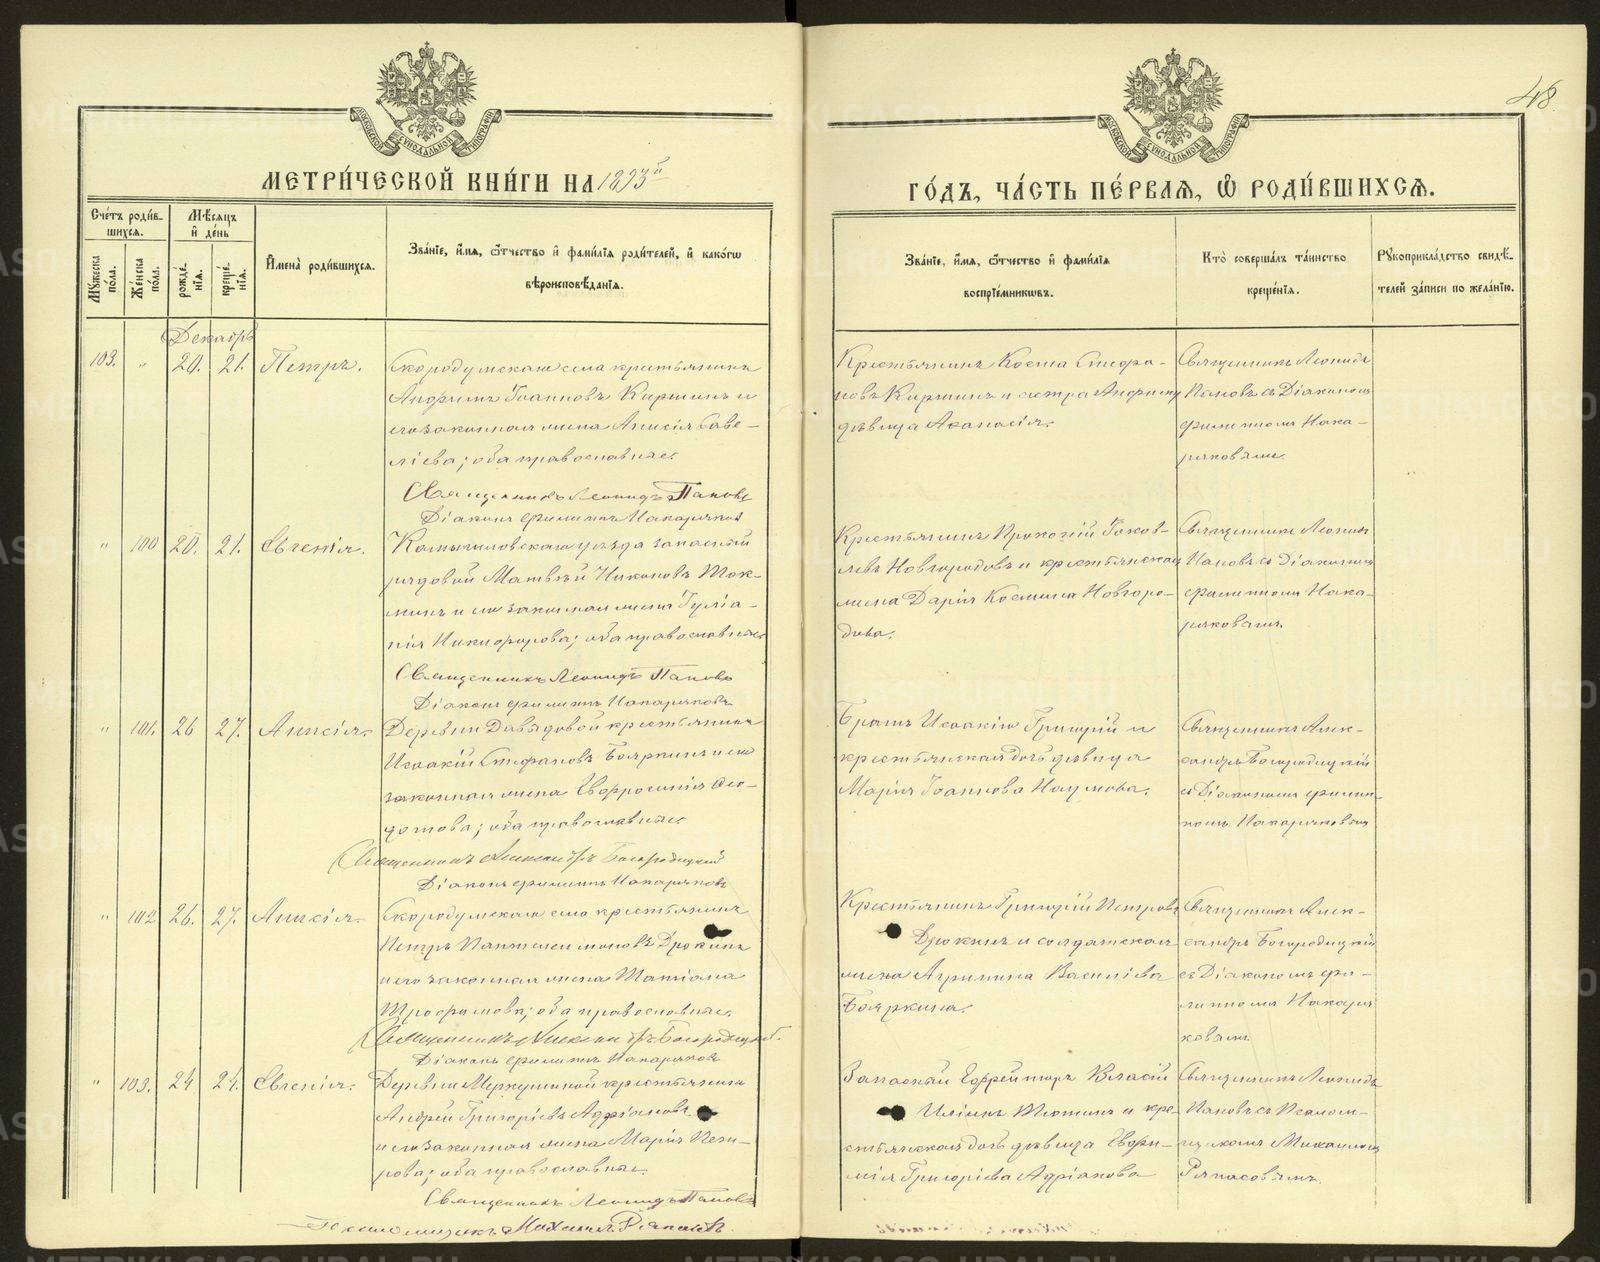 48
МЕТРИ́ЧЕСКОЙ КНИ́ГИ НА 1893й
ГО́ДЪ, ЧА́СТЬ ПЕ́РВАЯ, Ѿ РОДИ́ВШИХСЯ.
Сче́тъ роди́вшихся.
Мѣ́сяцъ и де́нь
Му́жеска по́ла.
Же́нска по́ла.
рожде́нїя.
креще́нїя.
И҆мена̀ роди́вшихся.
Зва́нїе, и҆́мя, ѻ҆́тчество и҆ фами́лїя роди́телей, и҆ како́гѡ
вѣроисповѣ́данїя.
Зва́нїе, и҆́мя, ѻ҆́тчество и҆ фами́лїя
воспрїе́мникѡвъ.
Кто̀ соверша́лъ та́инство
креще́нїя.
Рꙋкоприкла́дство свидѣ́-
телей за́писи по жела́нїю.
Декабрь
103. " 20. 21. Петръ.
Скородумскаго села крестьянинъ
Іоанновъ Киршинъ и
его законная жена Анисія Саве-
ліева; оба православные.
Священникъ Леонидъ Паповъ
Діаконъ Филиппъ
Крестьянинъ Косма Стефа-
новъ Киршинъ и сестра
дѣвица Аѳанасія.
Священникъ Леонидъ
Паповъ съ Діакономъ
Филиппомъ
" 100 20. 21. Евгенія.
Камышловскаго уѣзда запасный
рядовой Матвѣй Никоновъ Ток-
минъ и его законная жена Іуліа-
нія Никифорова; оба православные.
Священникъ Леонидъ Паповъ
Діаконъ Филиппъ
Крестьянинъ Прокопій Іаков-
левъ Новгородовъ и крестьянская
жена Дарія Космина Новгоро-
дова.
Священникъ Леонидъ
Паповъ съ Діакономъ
Филиппомъ
" 101. 26 27. Анисія.
Деревни Давыдовой крестьянинъ
Исаакій Стефановъ Бояркинъ и его
законная жена Евфросинія Ѳео-
дотова; оба православные.
Священникъ Александръ Богородицкій
Діаконъ Филиппъ
Братъ Исаакія Григорій и
крестьянская дочь дѣвица
Марія Іоаннова Наумова.
Священникъ Алек-
сандръ Богородицкій
съ Діакономъ Филип-
помъ
" 102 26. 27. Анисія.
Скородумскаго села крестьянинъ
Петръ Пантелеимоновъ Дрокинъ
и его законная жена Татіана
Трофимова; оба православные.
Священникъ Александръ Богородицкій.
Діаконъ Филиппъ
Крестьянинъ Григорій Петровъ
Дрокинъ и солдатская
жена Агрипина Василіева
Бояркина.
Священникъ Алек-
сандръ Богородицкій
съ Діакономъ Фи-
липпомъ
" 103. 24 24. Евгенія.
Деревни Меркушиной крестьянинъ
Андрей Григоріевъ Адріановъ
и его законная жена Марія Пет-
рова; оба православные.
Священникъ Леонидъ Паповъ
Псаломщикъ Михаилъ Ряпасовъ.
Запасный Ефрейторъ Власій
Иліинъ Тютинъ и кре-
стьянская дочь дѣвица Евфи-
мія Григоріева Адріанова
Священникъ Леонидъ
Паповъ съ Псалом-
щикомъ Михаиломъ
Ряпасовымъ.